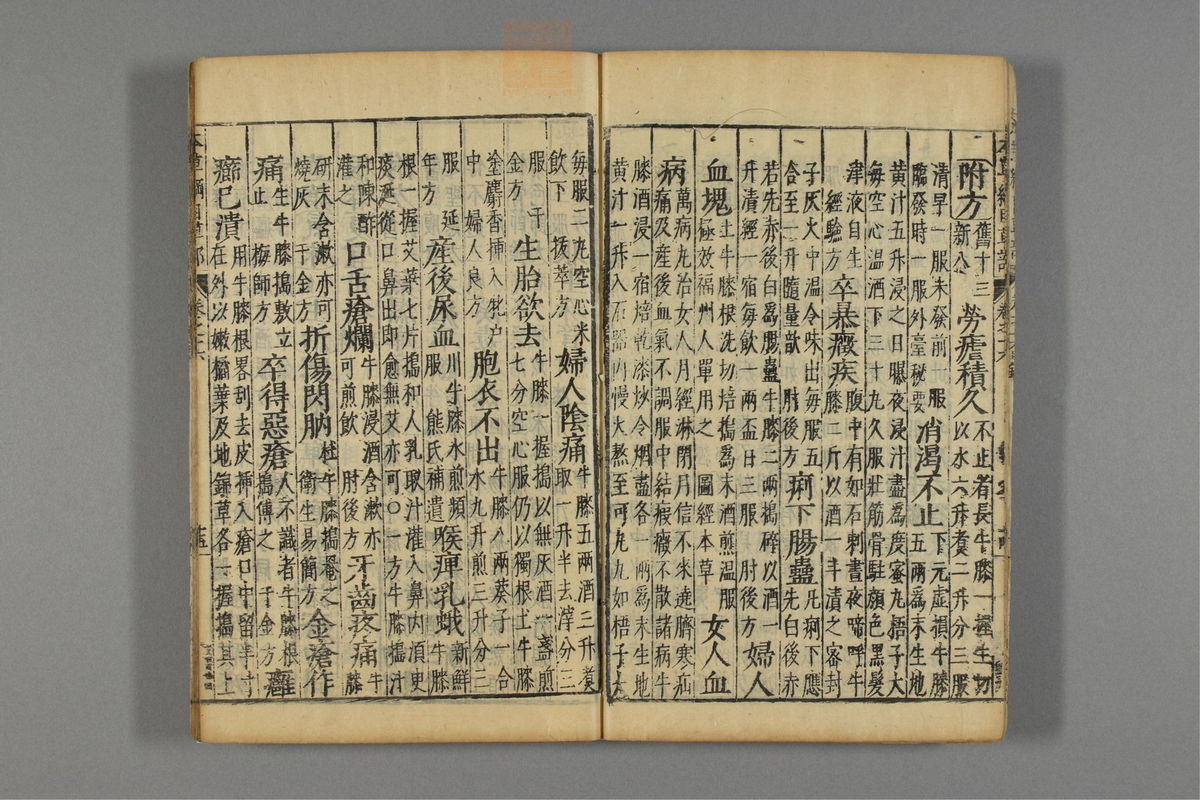 附方舊十三新八 勞瘧積久不止者長牛膝一握生切以水六升煮二升分三服
清早一服未發前一服臨發時一服外臺秘要 消渴不止下元虛損牛膝五兩爲末生地
黃汁五升浸之日曝夜浸汁盡爲度蜜丸梧子大每空心溫酒下三十丸久服壯筋骨駐顏色黑髮
津液自生 經驗方 卒暴癥疾腹中有如石刺晝夜啼呼牛膝二斤以酒一斗漬之密封
于灰火中溫令味出每服五合至一升隨量飲 肘後方 痢下腸蠱凡痢下應先白後赤
若先赤後白爲腸蠱牛膝二兩搗碎以酒一升漬經一宿每飲一兩盃日三服 肘後方 婦人
血塊土牛膝根洗切焙搗爲末酒煎溫服極效福州人單用之 圖經本草 女人血
病萬病丸治女人月經淋閉月信不來遶臍寒疝痛及産後血氣不調腹中結瘕癥不散諸病牛
膝酒浸一宿焙乾漆炒令烟盡各一兩爲末生地黃汁一升入石器內慢火熬至可丸丸如梧子大
每服二丸空心米飲下 拔萃方 婦人陰痛牛膝五兩酒三升煮取一升半去滓分三
服 千金方 生胎欲去牛膝一握搗以無灰酒一盞煎七分空心服仍以獨根土牛膝
塗麝香插入牝户中 婦人良方 胞衣不出牛膝八兩葵子一合水九升煎三升分三
服 延年方 産後尿血川牛膝水煎頻服 熊氏補遺 喉痺乳蛾新鮮牛膝
根一握艾葉七片搗和人乳取汁灌入鼻內須臾痰涎從口鼻出即愈無艾亦可〇一方牛膝搗汁
和陳酢灌之 口舌瘡爛牛膝浸酒含漱亦可煎飲 肘後方 牙齒疼痛牛膝
研末含漱亦可燒灰 千金方 折傷閃肭杜牛膝搗罨之 衛生易簡方 金瘡作
痛生牛膝搗敷立止 梅師方 卒得惡瘡人不識者牛膝根搗傅之 千金方 癰
癤已潰用牛膝根畧刮去皮插入瘡口中留半寸在外以嫩橘葉及地錦草各一握搗其上